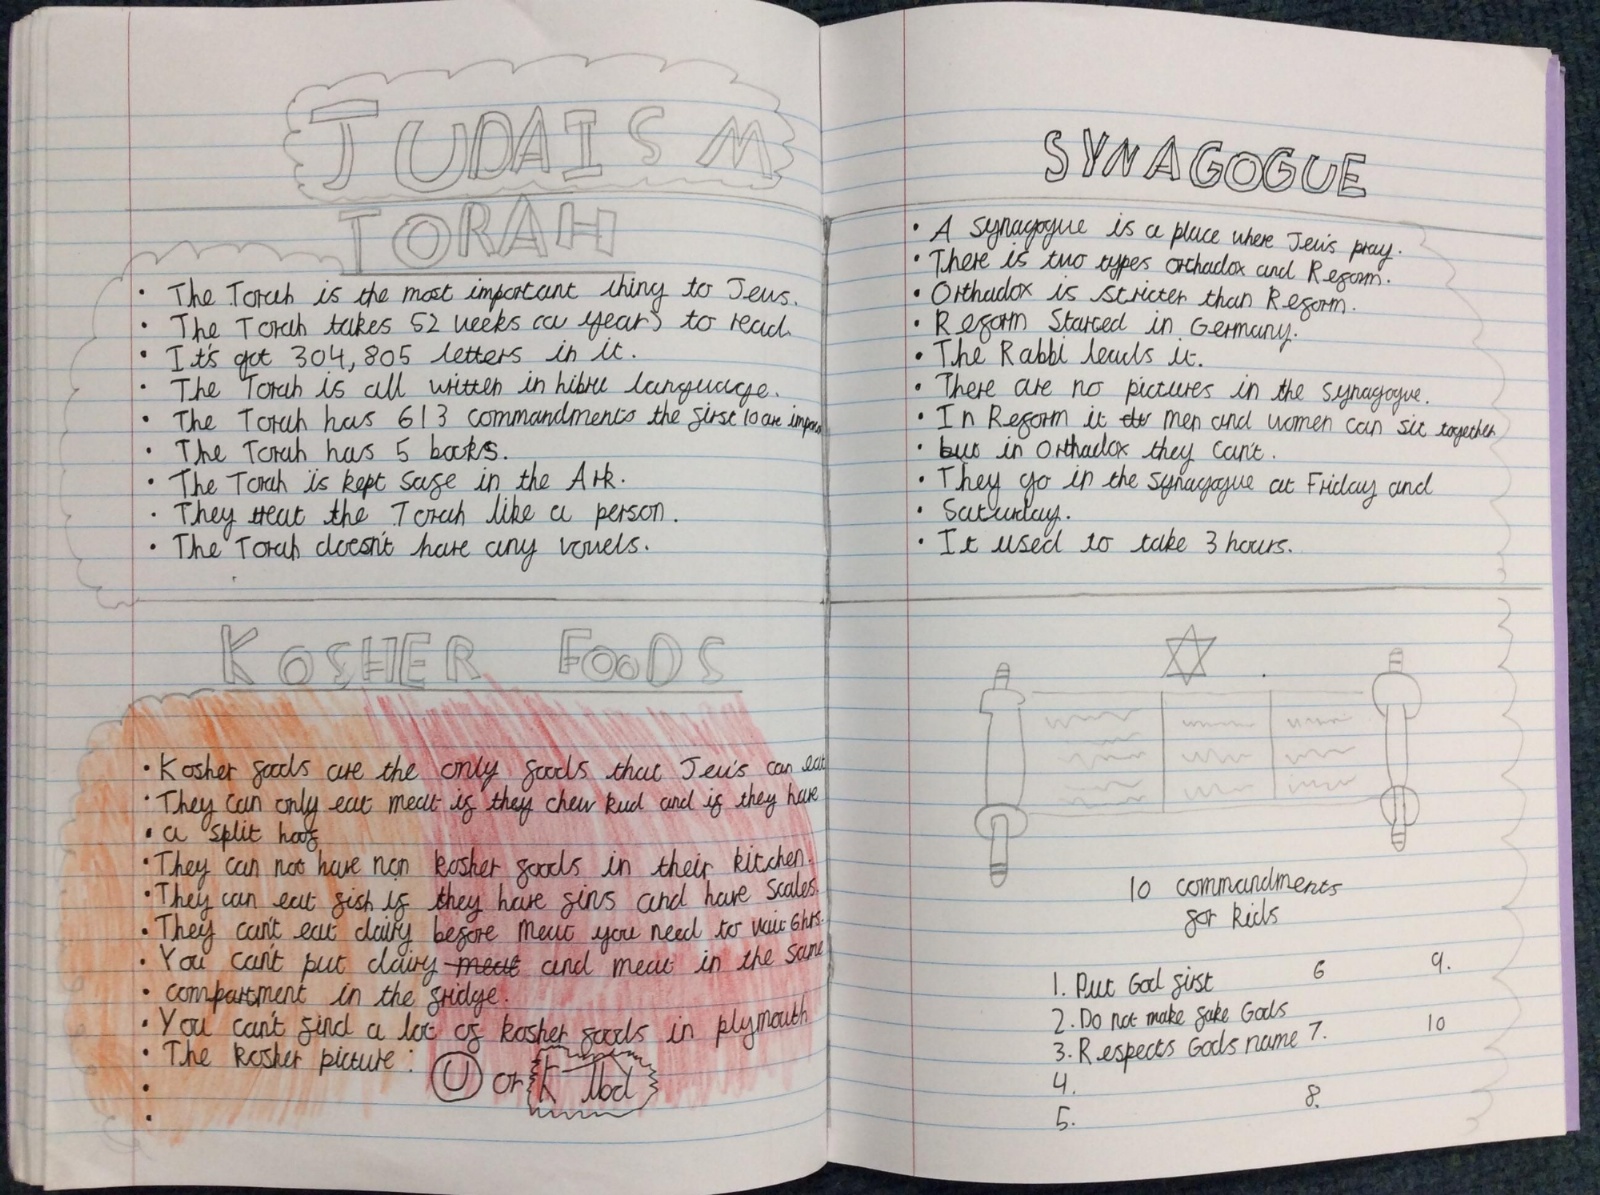 JUDAISM
TORAH
• The Torah is the most important thing to Jews.
• The Torah takes 52 weeks (a year) to read.
• It's got 304,805 letters in it.
• The Torah is all written in hibru language.
• The Torah has 613 commandments the first 10 are impor
• The Torah has 5 books.
• The Torah is kept safe in the Ark.
• They treat the Torah like a person.
• The Torah doesn't have any vowels.
KOSHER FOODS
• Kosher foods are the only foods that Jew's can eat
• They can only eat meat if they chew kud and if they have
• a split hoof
• They can not have non kosher foods in their kitchen.
• They can eat fish if they have fins and have scales.
• They can't eat dairy before meat you need to wait 6hrs.
• You can't put dairy meat and meat in the same
• compartment in the fridge.
• You can't find a lot of kosher foods in plymouth
• The kosher picture: U or K lbd
SYNAGOGUE
• A synagogue is a place where Jew's pray.
• There is two types orthadox and Reform.
• Orthadox is stricter than Reform.
• Reform Started in Germany.
• The Rabbi leads it.
• There are no pictures in the synagogue.
• In Reform it men and women can sit together
• but in Orthadox they can't.
• They go in the synagogue at Friday and
• Saturday.
• It used to take 3 hours.
10 commandments
for kids
1. Put God first
2. Do not make fake Gods
3. Respects Gods name
4.
5.
6
7.
8.
9.
10